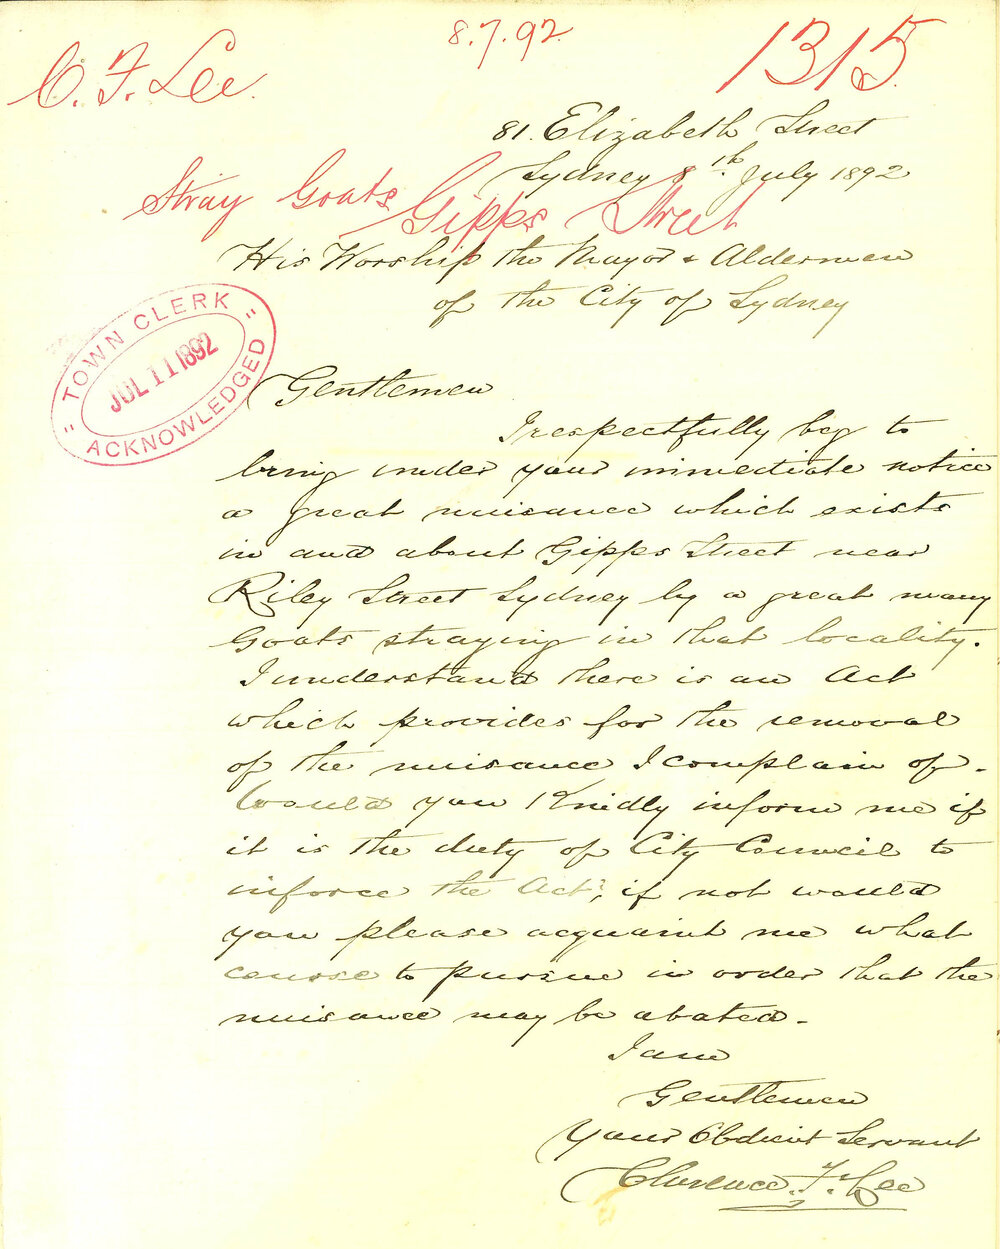 8.7.92
1315
C. F. Lee.
81. Elizabeth Street
Sydney 8th July 1892
Stray Goats Gipps Street
His Worship the Mayor & Aldermen
of the City of Sydney
"TOWN CLERK"
JUL 11 1892
ACKNOWLEDGED
Gentlemen
I respectfully beg to
bring under your immediate notice
a great nuisance which exists
in and about Gipps Street near
Riley Street Sydney by a great many
Goats straying in that locality.
I understand there is an Act
which provides for the removal
of the nuisance I complain of.
Would you Kindly inform me if
it is the duty of City Council to
inforce the Act?, if not would
you please acquaint me what
course to pursue in order that the
nuisance may be abated.
I am
Gentlemen
Your Obdient Servant
Clarence. F. Lee